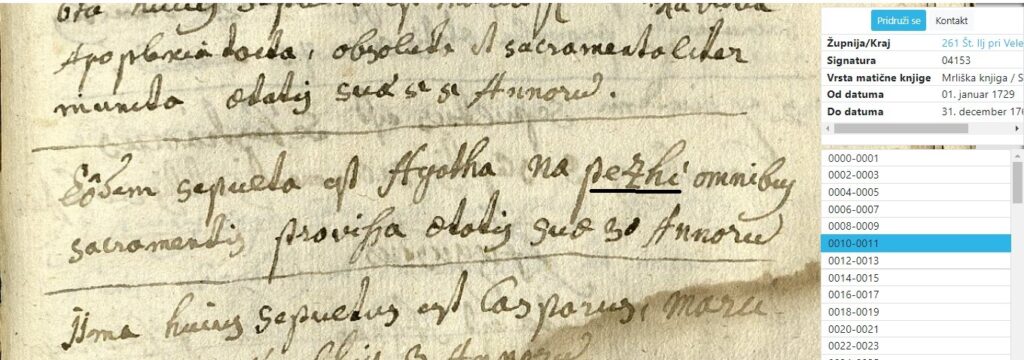 huius
Apoplexia tacta, obsolute et sacramentaliter
munita etatis suæ Annorū.
Eodem sepulta est Agatha na pezhi omnibus
sacramentis provissa etatis suæ 30 Annorū
huius sepultus est Casparus, Marci
Pridruži se Kontakt
Župnija/Kraj 261 Št. Ilj pri Vele
Signatura 04153
Vrsta matične knjige Mrliška knjiga / S
Od datuma 01. januar 1729
Do datuma 31. december 17
0000-0001
0002-0003
0004-0005
0006-0007
0008-0009
0010-0011
0012-0013
0014-0015
0016-0017
0018-0019
0020-0021
0022-0023